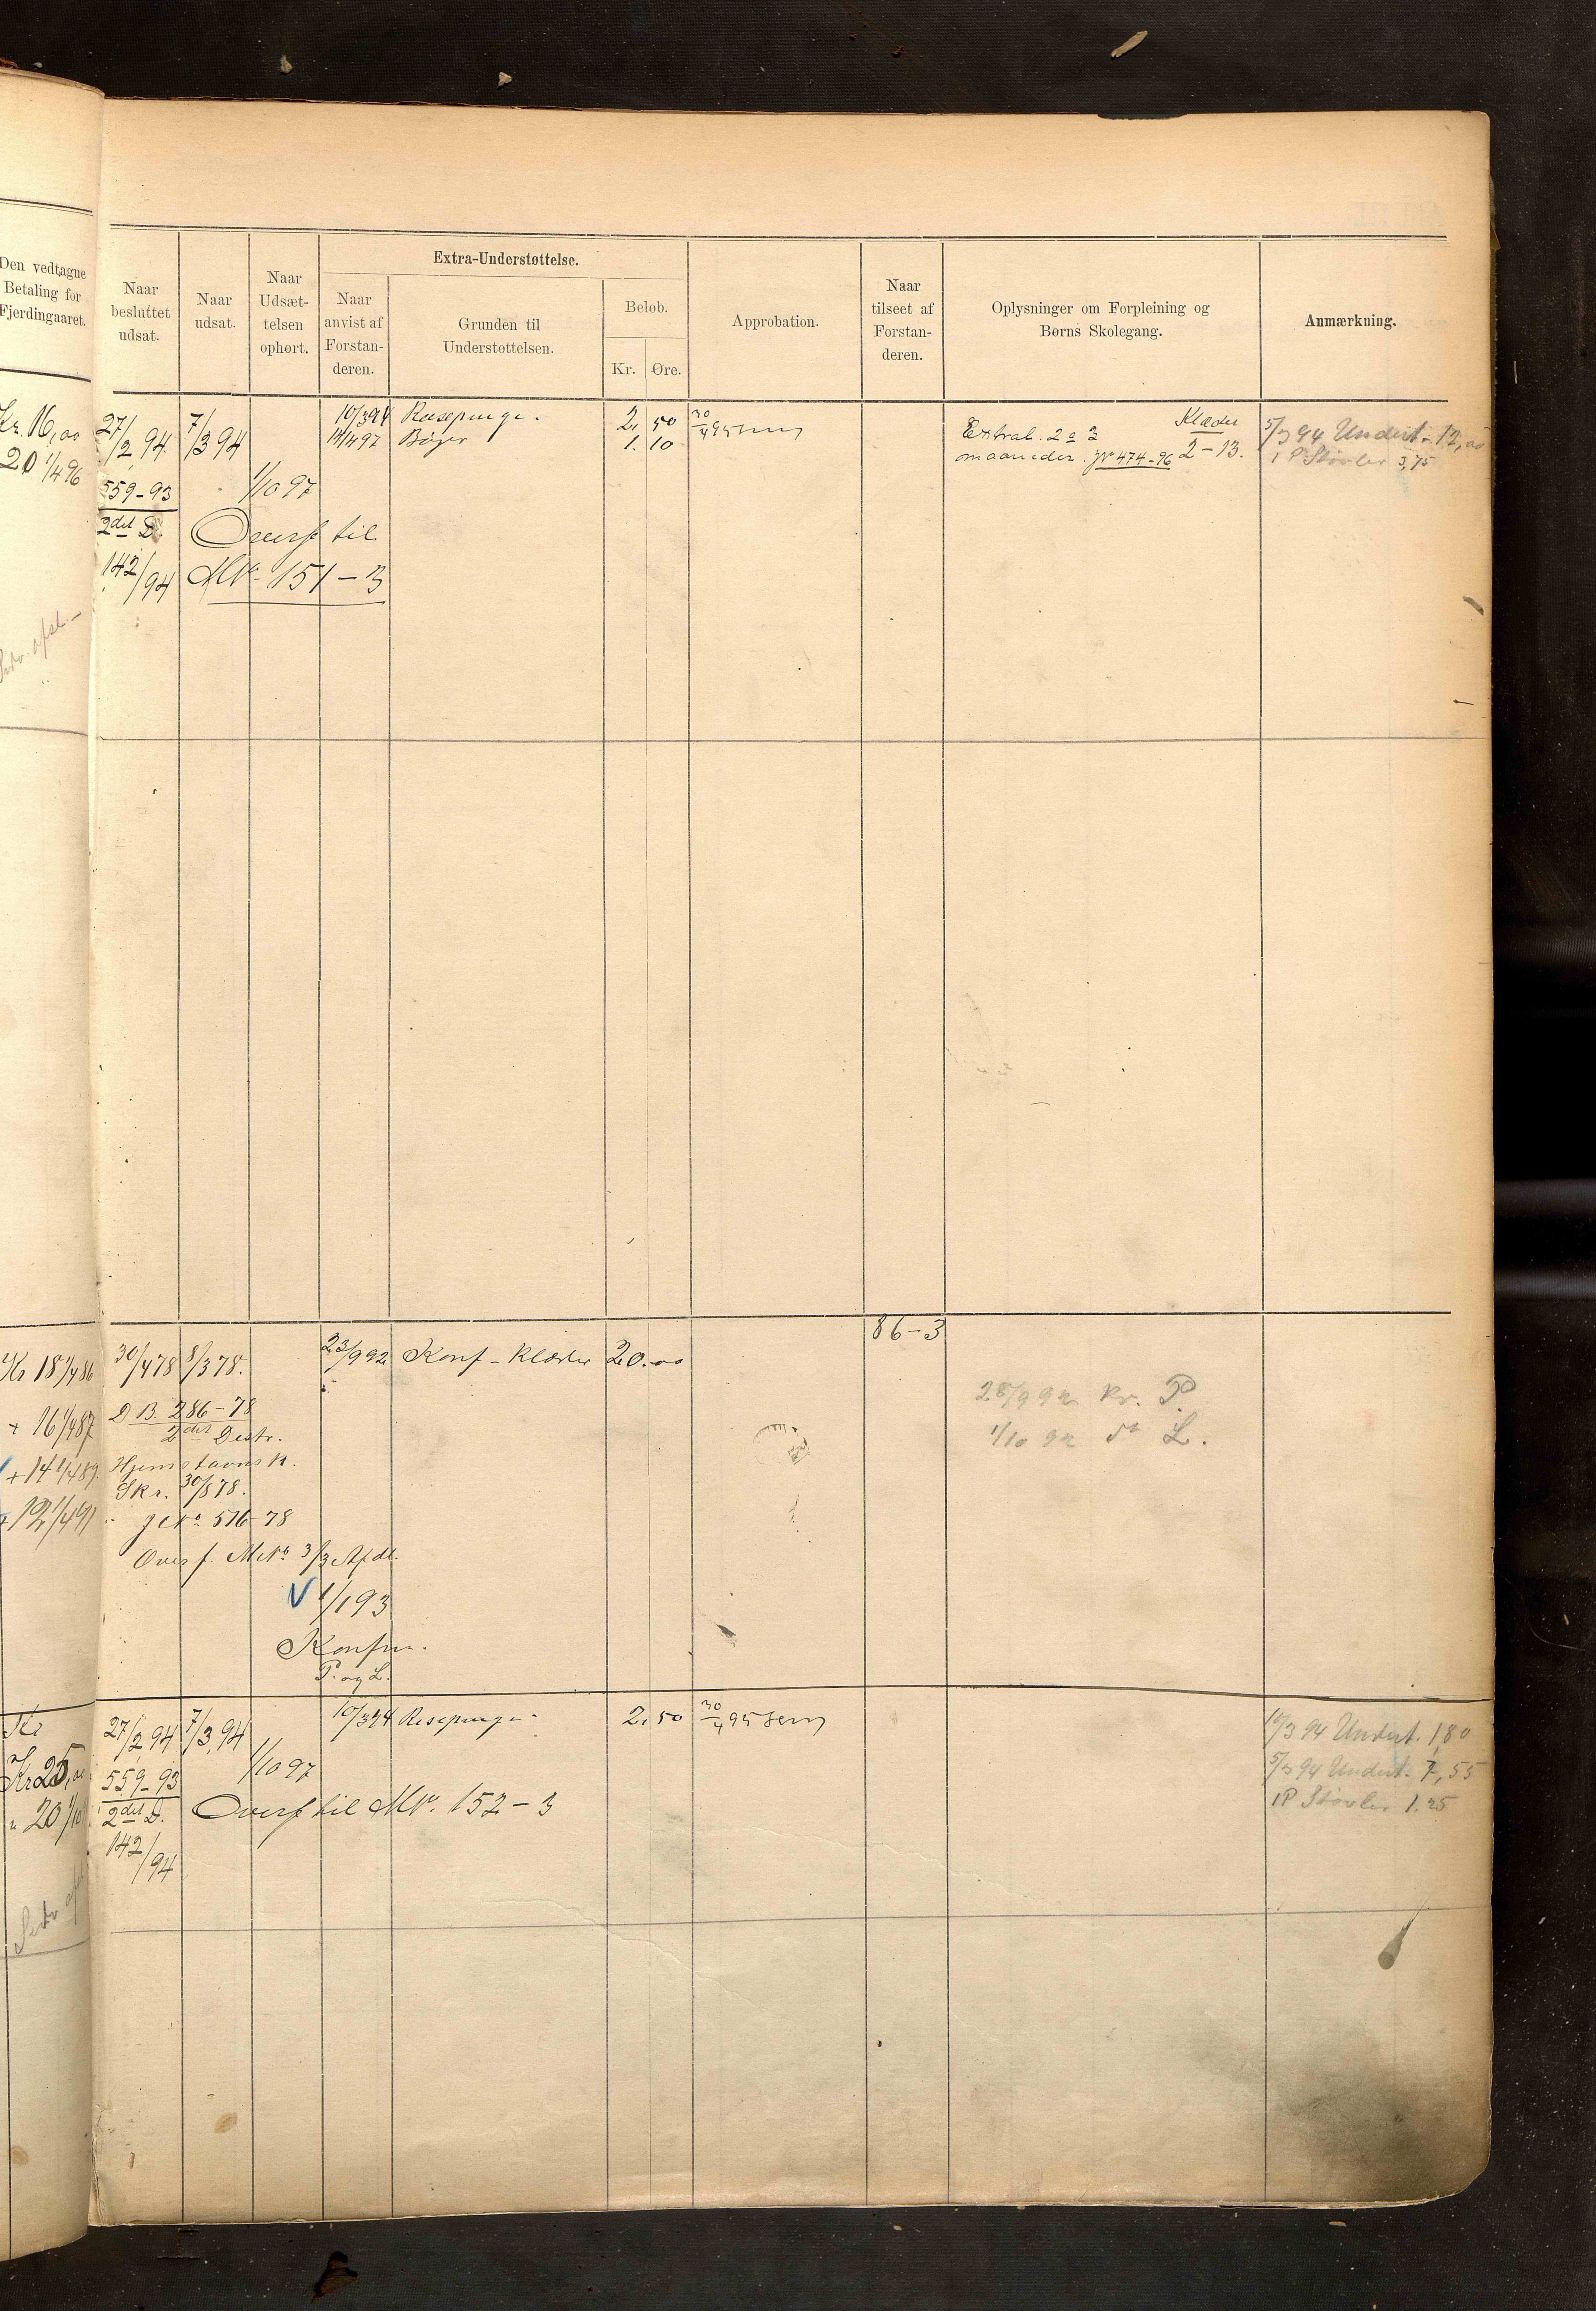 Den vedtagne
Betaling for
Fjerdingaaret.
Naar
besluttet
udsat.
Naar
udsat.
Naar
Udsæt-
telsen
ophørt.
Extra-Understøttelse.
Naar
anvist af
Forstan-
deren.
Grunden til
Understøttelsen.
Beløb.
Kr. Øre.
Approbation.
Naar
tilseet af
Forstan-
deren.
Oplysninger om Forpleining og
Børns Skolegang.
Anmærkning.
Kr. 16,00
20 1/4 96
27/2 94.
559-93
2det D.
142/94
7/3 94
1/10 97
Overf til
MNo 151-3
10/3 94 Reisepenge. 2, 50
97 Bøger 1. 10
30/4 95
Extrab. 2 a 3
omaaneder. JNo 474-96
Klæder
2-13.
5/3 94 Underst. 12,00
1 P Støvler 3,75
Kr 18 1/4 86
+ 16 1/4 87
+ 14 1/4 89
+ 12 1/4 91
30/4 78 8/3 78.
D B. 286-78
2det Distr.
Hjemstavns K.
Skr. 30/8 78.
JNo 516-78
Overf. MNo 3/3 Afdl.
V 1/1 93
Konfm.
P. og L.
23/9 92 Konf-Klæder 20.00
86-3
28/9 92 Kr. P.
1/10 92 do L.
Kr
Kr 25,00
" 20 1/10
27/2 94
559-93
2det D.
142/94
7/3 94
1/10 97
Overf til MNo. 152-3
10/3 94 Reisepenge. 2, 50
30/4 95
10/3 94 Underst. 1,80
5/3 94 Underst. 7,55
1P Støvler 1.25